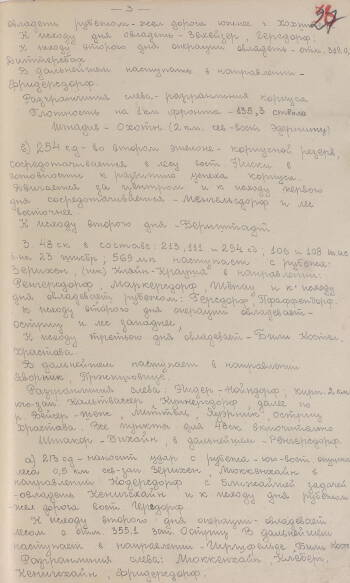 — 3 —
овладеть рубежом - жел дорога южнее г. Хохт
К исходу дня овладеть - Зехейзер, Герсдорф
К исходу второго дня операции овладеть - отм. 398.0,
Диттерсбах
В дальнейшем наступать в направлении -
Фридерсдорф.
Разгранлиния слева - разгранлиния корпуса
Плотность на 1 км фронта - 135,3 ствола
Штадив - Охоты (2 км. сев-вост
б) 254 сд - во втором эшелоне - корпусной резерв,
сосредотачивается в лесу вост Ниски в
готовности к развитию успеха корпуса.
Двигается за центром и к исходу первого
дня сосредотачивается - Менгельсдорф и лес
восточнее.
К исходу второго дня - Бернштадт
3. 48 ск в составе: 213, 111 и 294 сд, 106 и 108
23 птабр; 569 мп наступает с рубежа
Зерихен, (иск) Кляйн-Крауша в направлении:
Ренгерсдорф, Маркерсдорф, и к исходу
дня овладевает рубежом: Герсдорф, Пфаффендорф.
К исходу второго дня операции овладевает -
Остриц и лес западнее,
К исходу третьего дня овладевает - Били Костел,
Храстава.
В дальнейшем наступает в направлении
Зворник,
Разгранлиния слева: Эндер - Нойндорф; кирп. 2 км
юго-зап Кальтвассер, Куннерсдорф далее по
р. Вейсер - Шепс, Миттель, Остриц
Храстава. Все пункты для 48 ск включительно
Штакор - Вихайн, в дальнейшем - Ренгерсдорф.
а) 213 сд - наносит удар с рубежа - юго-вост опушка
леса 0,5 км сев-зап Зерихен, Моккенхайн в
направлении Кодерсдорф с ближайшей задачей
- овладеть Кенигсхайн и к исходу дня рубежом
- жел дорога вост Герсдорф
К исходу второго - дня операции - овладевает
лесом с отм. 355,1 зап. Остриц. В дальнейшем
наступает в направлении - Били Костел
Разгранлиния слева: Моккенхайн,
Кенигсхайн, Фридерсдорф.